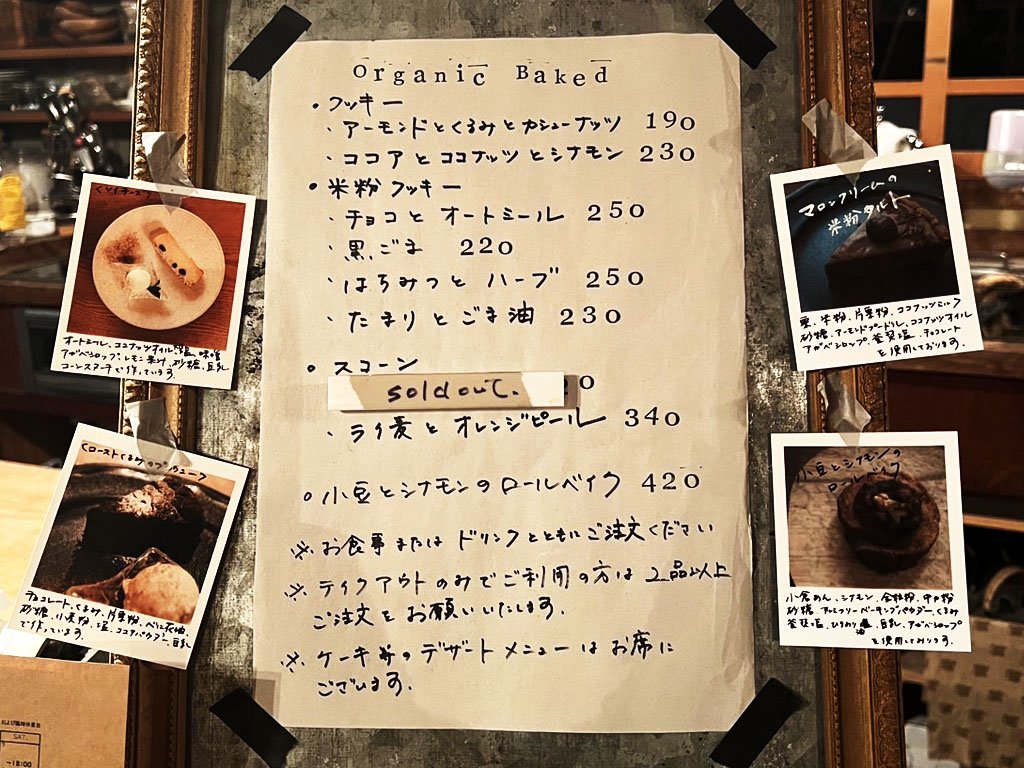 Organic Baked
・クッキー
・アーモンドとくるみとカシューナッツ 190
・ココアとココナッツとシナモン 230
・米粉クッキー
・チョコとオートミール 250
・黒ごま 220
・はちみつとハーブ 250
・たまりとごま油 230
・スコーン
sold out. 0
・ライ麦とオレンジピール 340
○小豆とシナモンのロールベイク 420
※お食事またはドリンクとともにご注文ください
※テイクアウトのみでご利用の方は2品以上
ご注文をお願いいたします。
※ケーキ等のデザートメニューはお席に
ございます。
オートミール、ココナッツオイル、塩、味噌
アガベシロップ、レモン果汁、砂糖、豆乳
コーンスターチで作っています
チョコレート、くるみ、片栗粉、べに花油、
砂糖、小麦粉、塩、ココアパウダー、豆乳
で作っています。
マロンクリームの
米粉タルト
栗、米粉、片栗粉、ココナッツミルク
砂糖、アーモンドプードル、ココナッツオイル
アガベシロップ、釜焚塩、チョコレート
を使用しております。
小豆とシナモンの
ロールベイク
小倉あん、シナモン、全粒粉、中力粉
砂糖、アルミフリーベーキングパウダー、くるみ
釜焚塩、ひまわり油、豆乳、アガベシロップ
を使用しております。
および臨時休業
SAT.
-18:00